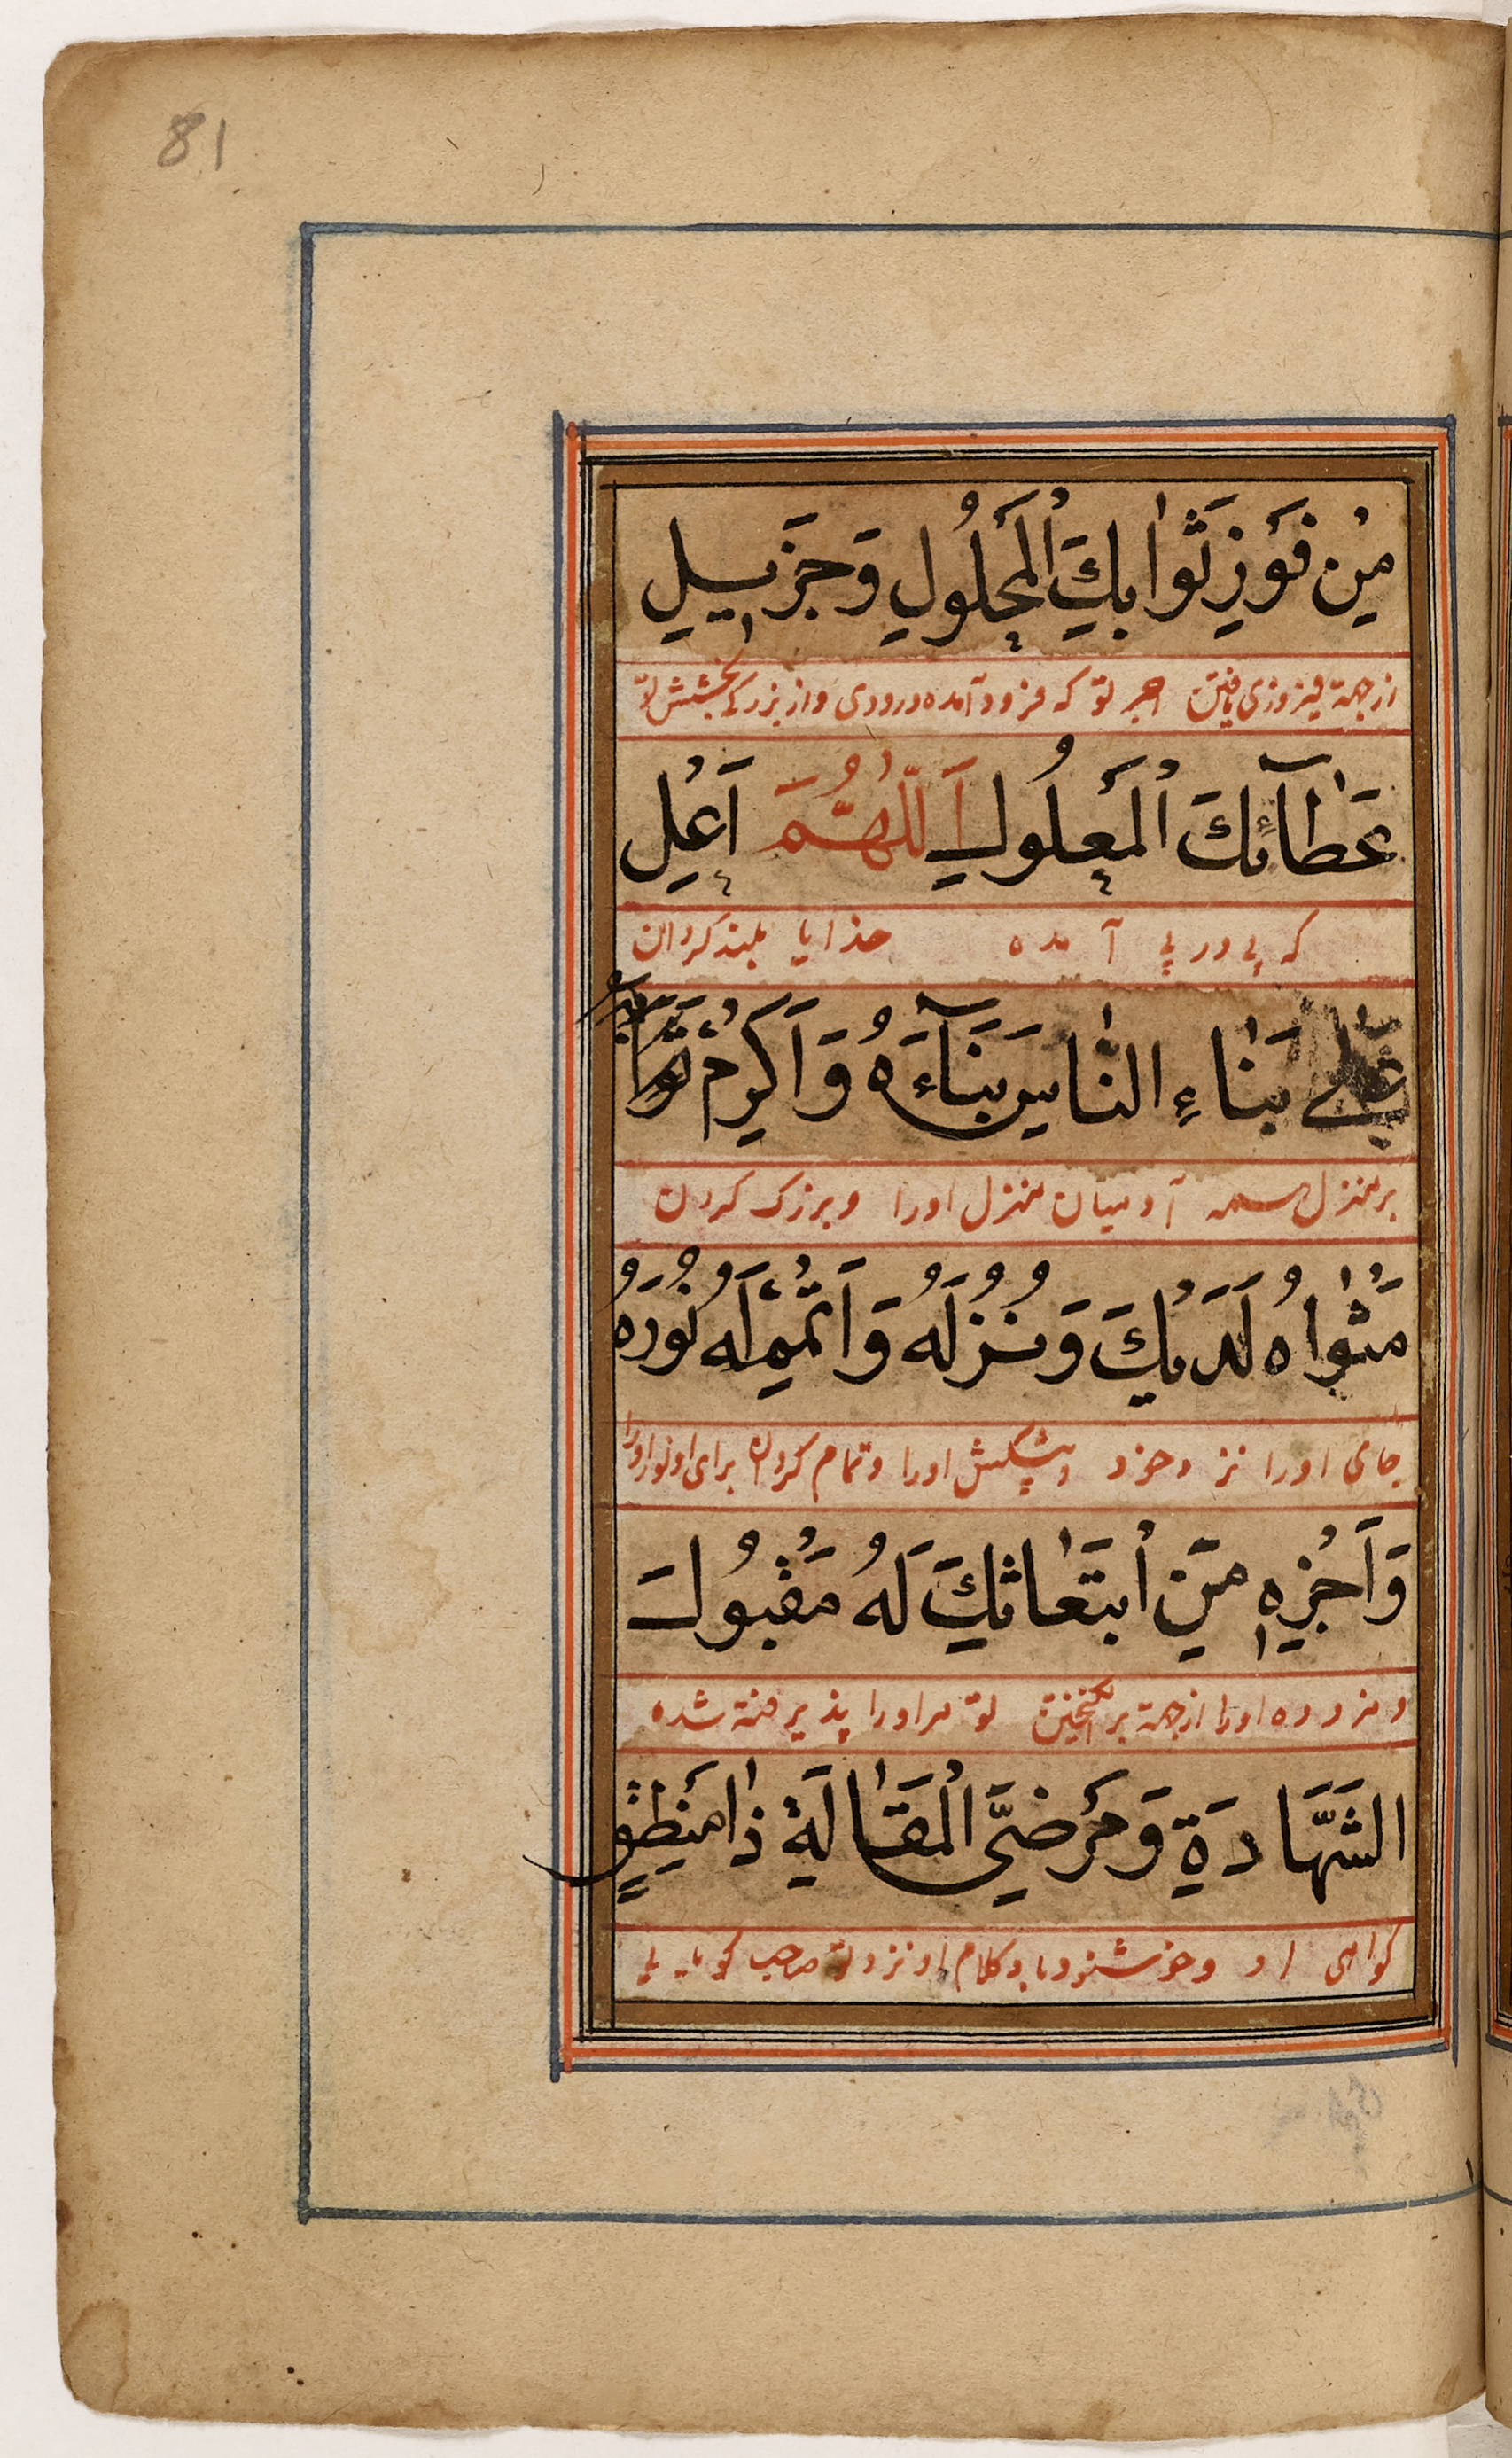 81
مِنْ فَوْزِ ثَوَابِكَ الْمَحْلُولِ وَجَزِيلِ
ازجهة فیروزی یافتن اجر تو که فرود آمده درودی واز بزرکی بخشش تو
عَطَآئِكَ الْمَعْلُولِ اَللّٰهُمَّ اَعْلِ
که پی در پی آمده خدایا بلند کردان
عَلٰى بَنَاءِ النَّاسِ بَنَآءَهُ وَاَكْرِمْ
بر منزل همه آدمیان منزل اورا وبزرک کردن
مَثْوَاهُ لَدَيْكَ وَنُزُلَهُ وَاَتْمِمْ لَهُ نُورَهُ
جای اورا نزد خود وپیشکش اورا وتمام کردان برای او نور اورا
وَاَجْزِهِ مِنَ ابْتِعَاثِكَ لَهُ مَقْبُولَ
ومزد ده اورا ازجهة برانکیختن تو مراورا پذیرفته شده
الشَّهَادَةِ وَمَرْضِيَّ الْمَقَالَةِ ذَا مَنْطِقٍ
کواهی او وخوشنود کلام او نزد تو صاحب